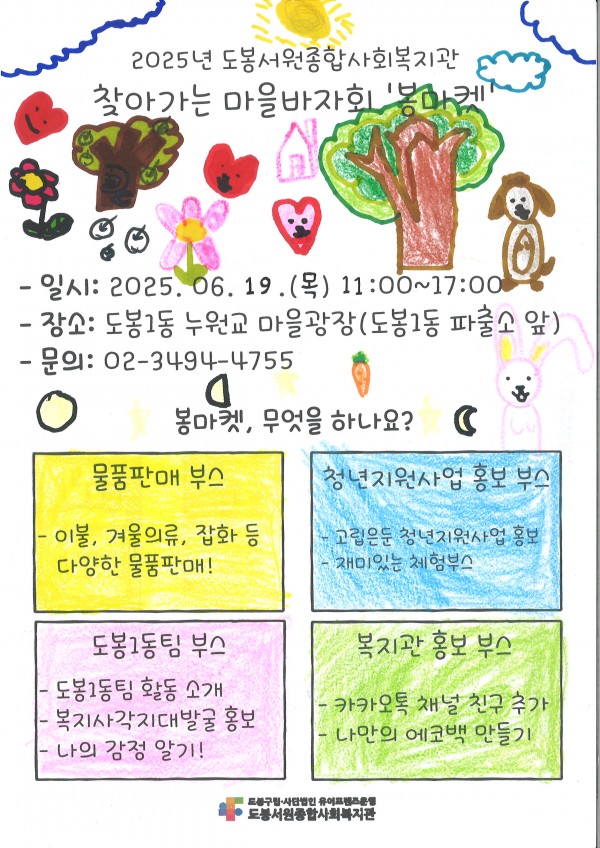 2025년 도봉서원종합사회복지관
찾아가는 마을바자회 '봉마켓'
- 일시: 2025. 06. 19.(목) 11:00~17:00
- 장소: 도봉1동 누원교 마을광장(도봉1동 파출소 앞)
- 문의: 02-3494-4755
봉마켓, 무엇을 하나요?
물품판매 부스
- 이불, 겨울의류, 잡화 등
다양한 물품판매!
청년지원사업 홍보 부스
- 고립은둔 청년지원사업 홍보
- 재미있는 체험부스
도봉1동팀 부스
- 도봉1동팀 활동 소개
- 복지사각지대발굴 홍보
- 나의 감정 알기!
복지관 홍보 부스
- 카카오톡 채널 친구 추가
- 나만의 에코백 만들기
도봉구립·사단법인 유이프렌즈운영
도봉서원종합사회복지관